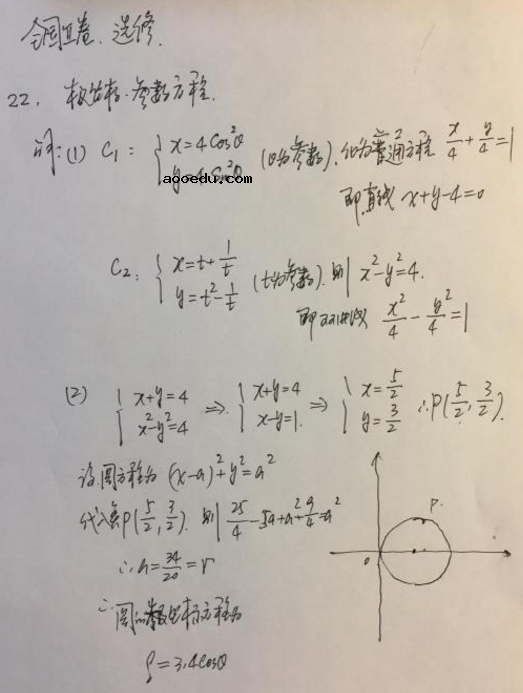 全国II卷、选修.
22. 极坐标·参数方程.
解:(1) C₁: { x=4cos²θ (θ为参数), 化为普通方程 x/4+y/4=1
aooedu.com
即直线 x+y-4=0
C₂: { x=t+1/t
y=t²-1/t (t为参数). 则 x²-y²=4.
即双曲线 x²/4-y²/4=1
(2) { x+y=4 ⇒ { x+y=4 ⇒ { x=5/2
x²-y²=4 x-y=1. y=3/2 ∴P(5/2,3/2).
设圆方程为 (x-a)²+y²=a²
代入点P(5/2,3/2). 则 25/4-5a+a²+9/4=a²
P.
∴a=34/20=r
0
∴圆的极坐标方程为
ρ=3.4cosθ